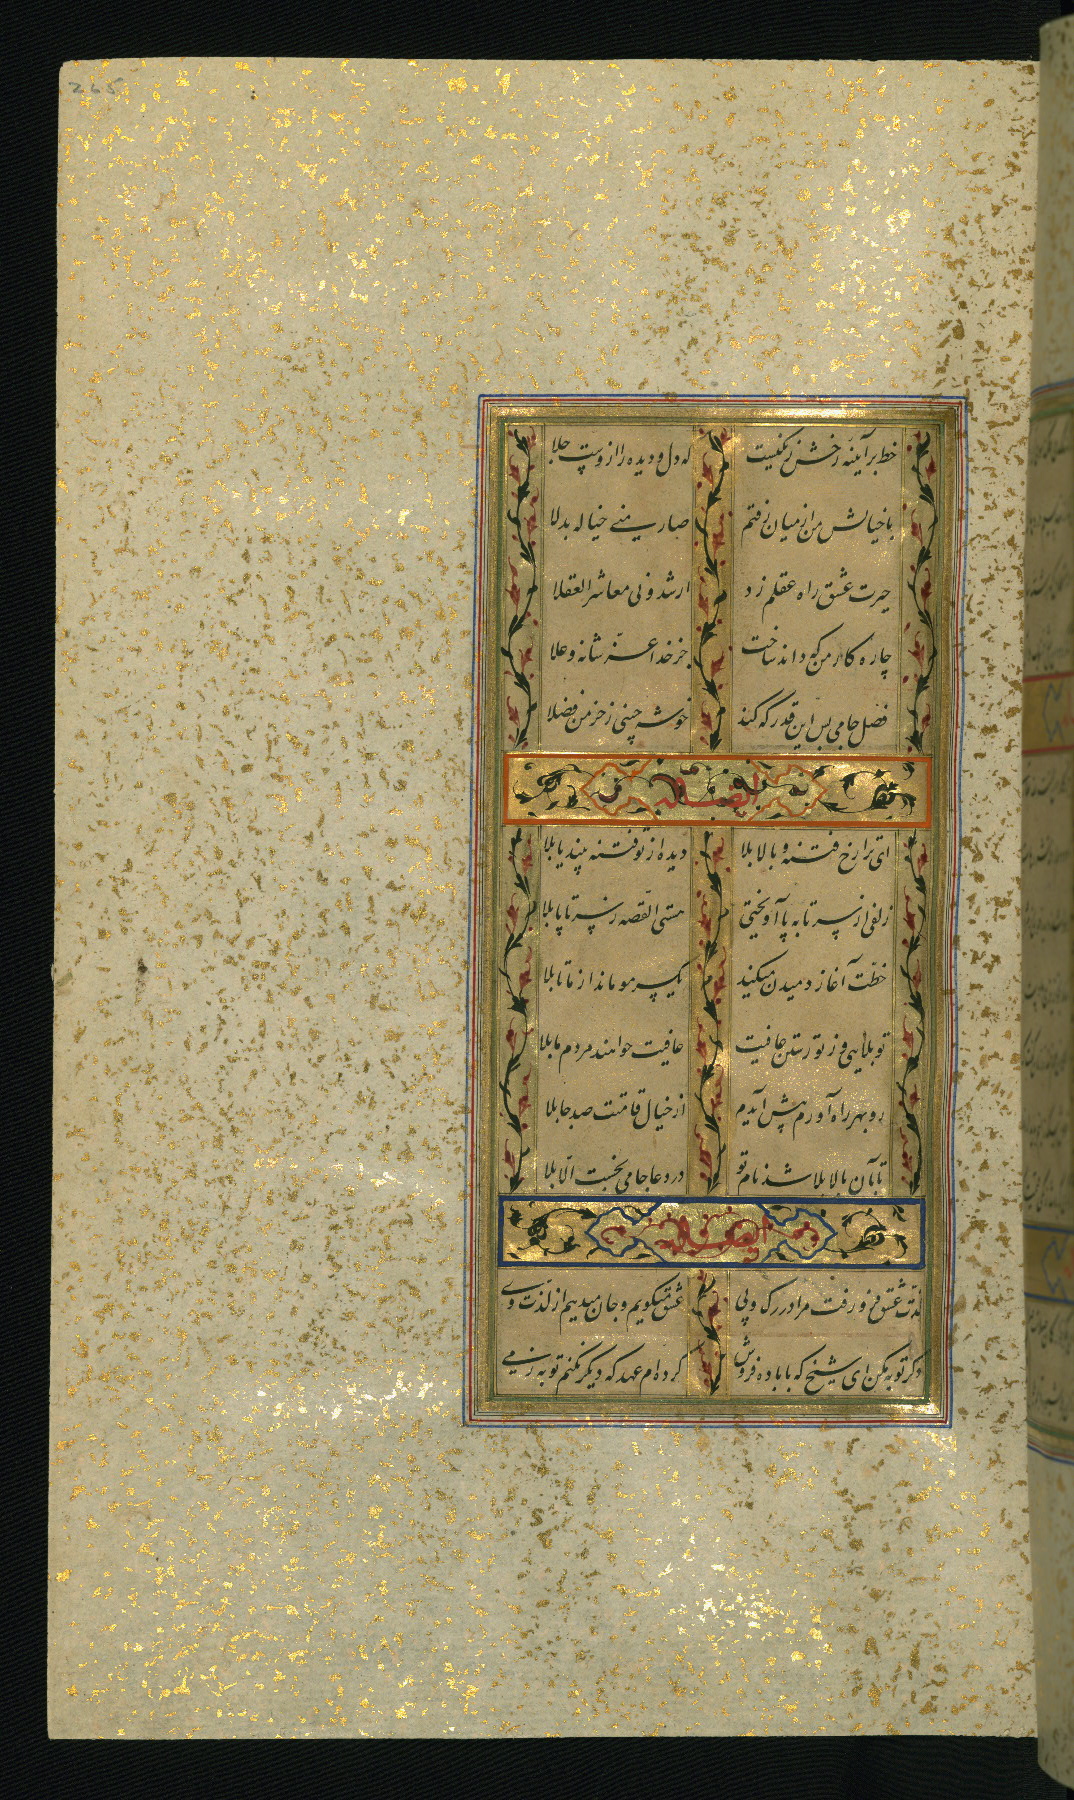 265
خط بر آینه رخش زنگیست که دل و دیده را ازوست جلا
با خیالش من از میان رفتم صار منی خیاله بدلا
حیرت عشق راه عقلم زد ارشدونی معاشر العقلا
چاره کار من که داند ساخت جز خدا عز شانه و علا
فضل جامی بس این قدر که کند خوشه چینی ز خرمن فضلا
ای ترا رخ فتنه و بالا بلا دیده از تو فتنه بیند یا بلا
زلفی از سر تا به پا آویختی هستی القصه ز سر تا پا بلا
خطت آغاز دمیدن میکند یک سر مو ماند از ما تا بلا
تو بلایی و ز تو رستن عافیت عافیت خواهند مردم ما بلا
رو بهر راه آورم پیش آیدم از خیال قامتت صد جا بلا
تا بآن بالا بلا شد نام تو در دعا جامی نجست الا بلا
لذت عشق فرو رفت مرا در رگ و پی عشق میگویم و جان میدهم از لذت وی
ذکر توبه مکن ای شیخ که با باده فروش کرده ام عهد که دیگر نکنم توبه ز می